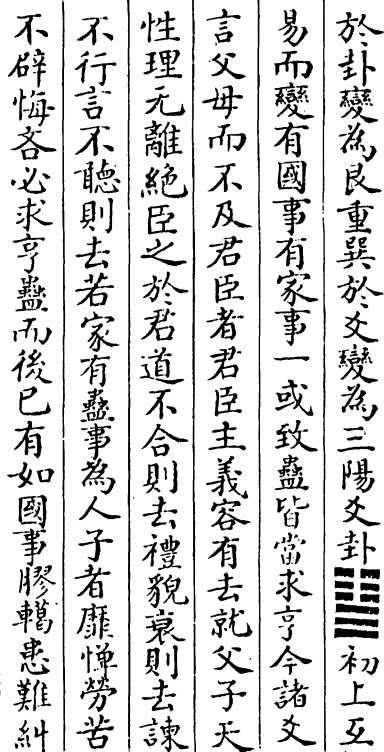 於卦變為艮重巽於爻變為三陽爻卦䷊初上互
易而變有國事有家事一或致蠱皆當求亨今諸爻
言父母而不及君臣者君臣主義容有去就父子天
性理无離絕臣之於君道不合則去禮貌衰則去諫
不行言不聽則去若家有蠱事為人子者靡憚勞苦
不辟悔吝必求亨蠱而後已有如國事膠轕患難糾